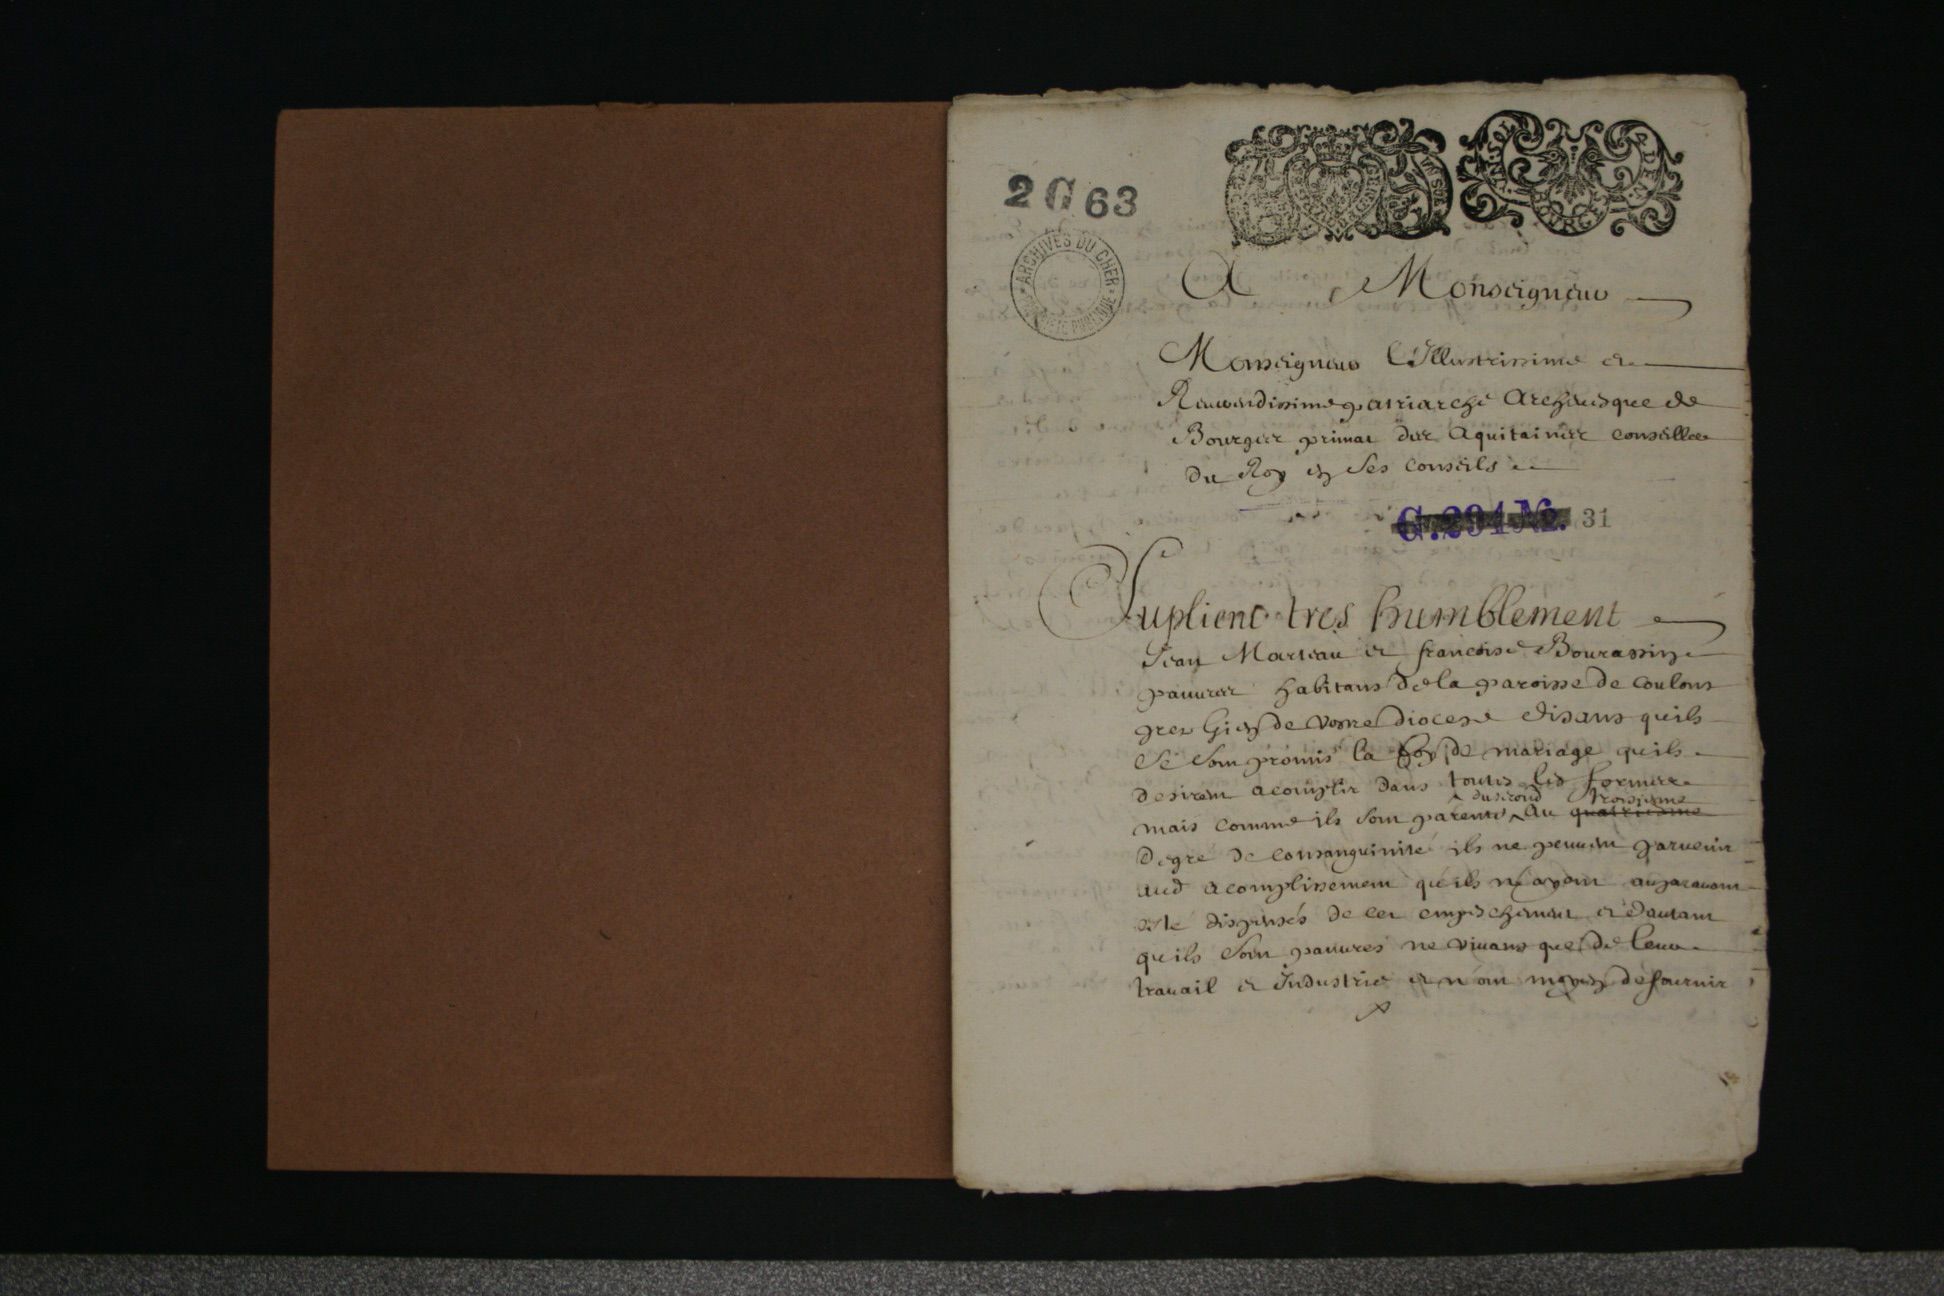 2 G 63
ARCHIVES DU CHER
PROPRIETE PUBLIQUE
A Monseigneur
Monseigneur l'Illustrissime et
Reuerendissime patriarche Archeuesque de
Bourges primat des Aquitaines conseiller
du Roy en Ses conseils
G.294 No. 31
Suplient tres humblement
Jean Marteau et francoise Bourassin
pauures habitans de la paroisse de coulons
prez Gien de vostre diocese disans quils
se sont promis la foy de mariage quils
desirent acomplir dans toutes les formes
du second troisiesme
mais comme ils sont parents au quatriesme
degré de consanguinité ils ne peuuent paruenir
aud acomplissement quils nayent auparauant
esté dispensés de cet empeschement et dautant
quils sont pauures ne viuans que de leur
trauail et Industrie et n'ont moyen de fournir